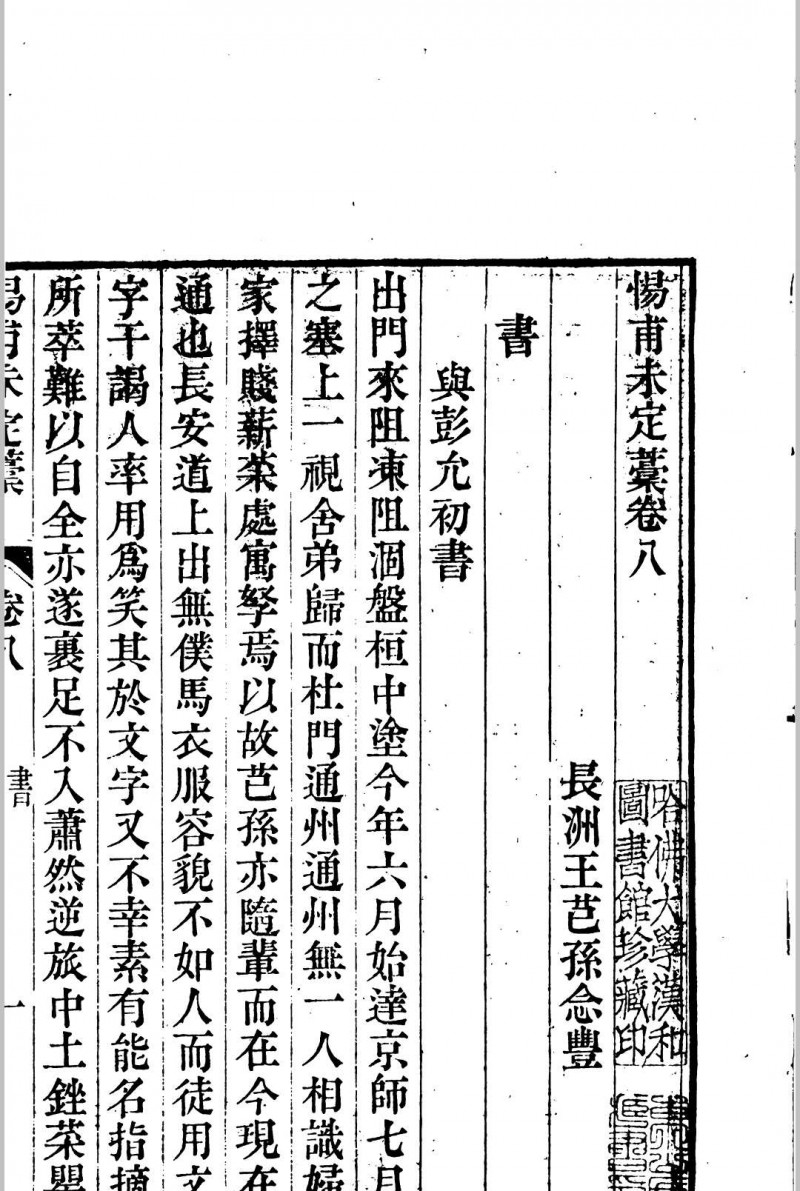 惕甫未定藁卷八
哈佛大學漢和
圖書館珍藏印
長洲王芑孫念豐
書
與彭允初書
出門來阻凍阻涸盤桓中塗今年六月始達京師七月
之塞上一視舍弟歸而杜門通州通州無一人相識婦
家擇賤薪菜處寓孥焉以故芑孫亦隨輩而在今現在
通也長安道上出無僕馬衣服容貌不如人而徒用文
字干謁人率用爲笑其於文字又不幸素有能名指摘
所萃難以自全亦遂裹足不入蕭然逆旅中土銼菜罌
惕甫未定藁
卷八
書
一